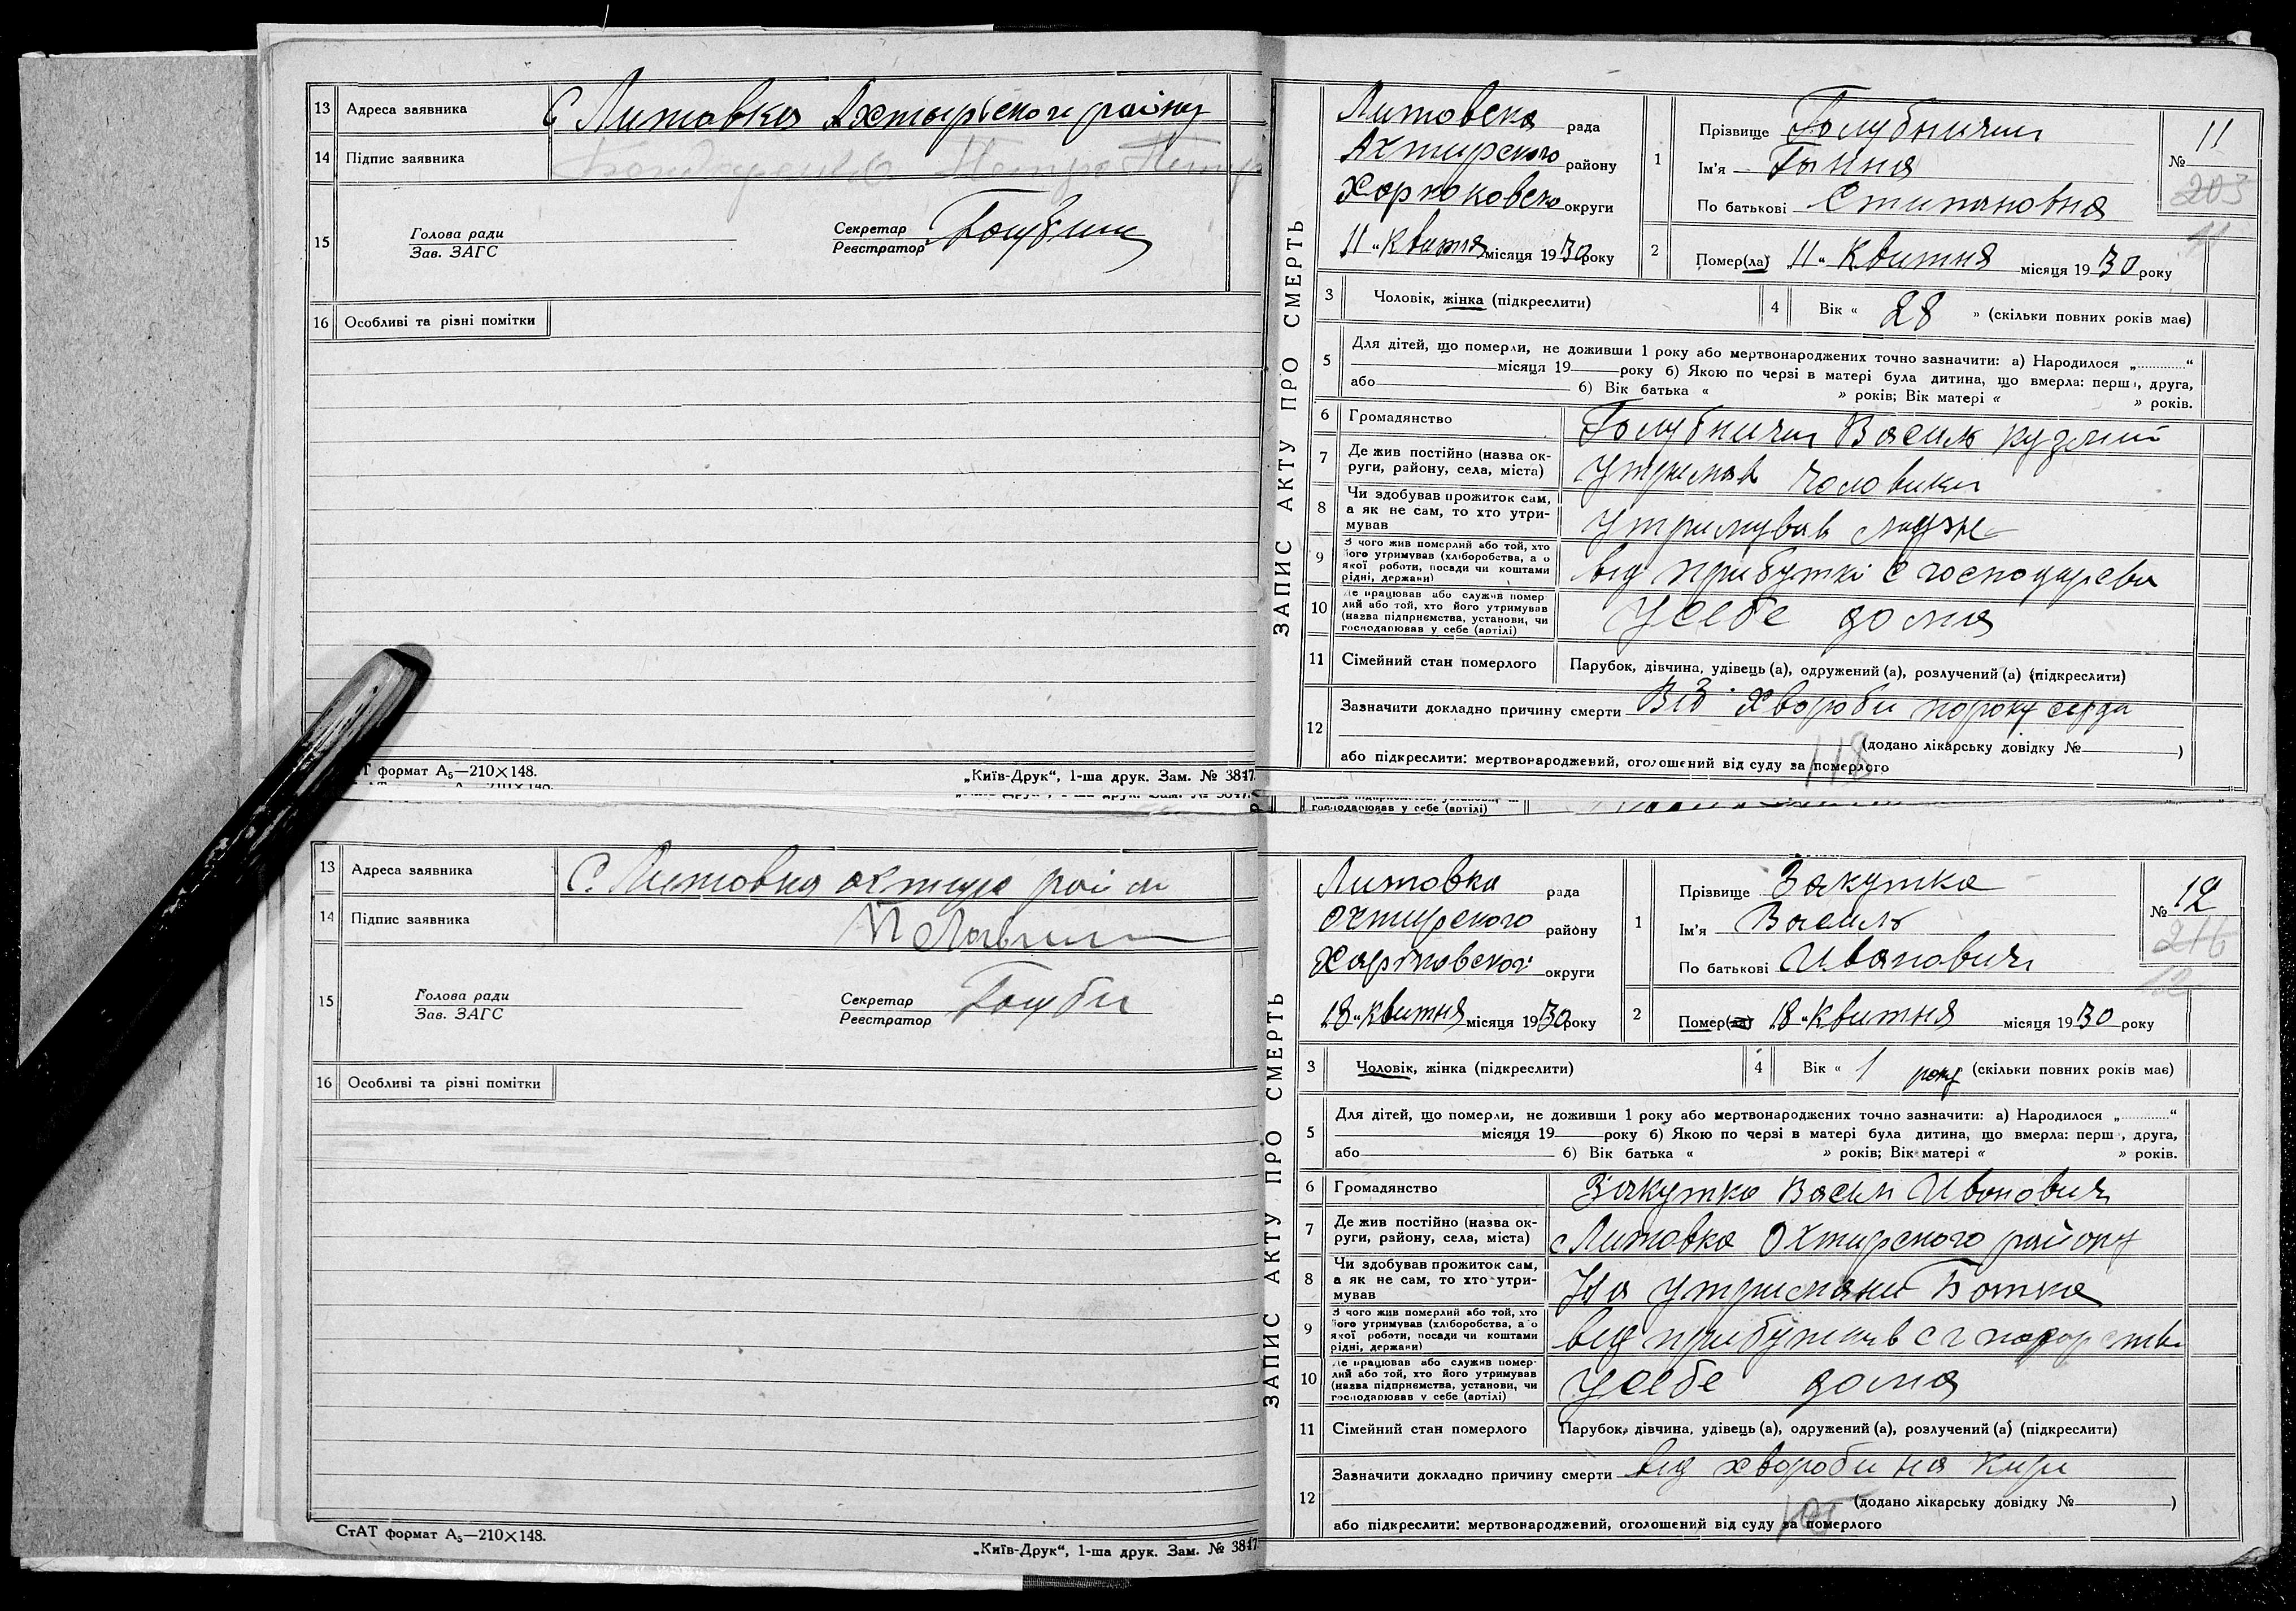 13 Адреса заявника С Литовка Ахтырского району
14 Підпис заявника Бондаренко Петро
15 Голова ради Зав. ЗАГС Секретар Реєстратор
16 Особливі та різні помітки
формат А₅—210×148.
„Київ-Друк“, 1-ша друк. Зам. № 3847
ЗАПИС АКТУ ПРО СМЕРТЬ
Литовска рада
Ахтирского району
округи
11 „ Квитня місяця 1930 року
1 Прізвище Голубничи
Ім'я Ганна
По батькові Степановна
№ 11
203
11
2 Помер(ла) 11 „ Квитня місяця 1930 року
3 Чоловік, жінка (підкреслити)
4 Вік « 28 » (скільки повних років має)
5 Для дітей, що померли, не доживши 1 року або мертвонароджених точно зазначити: а) Народилося „............“
місяця 19 року б) Якою по черзі в матері була дитина, що вмерла: перш , друга,
або б) Вік батька « » років; Вік матері « » років.
6 Громадянство Голубничи Василь
7 Де жив постійно (назва округи, району, села, міста) чоловика
8 Чи здобував прожиток сам, а як не сам, то хто утримував утримував
9 З чого жив померлий або той, хто його утримував (хліборобства, а о якої роботи, посади чи коштами рідні, держави) від прибутки с
10 Де працював або служив померлий або той, хто його утримував (назва підприємства, установи, чи господарював у себе (артілі) у себе дома
11 Сімейний стан померлого Парубок, дівчина, удівець (а), одружений (а), розлучений (а) (підкреслити)
12 Зазначити докладно причину смерти Від хвороби пороку серця
(додано лікарську довідку № )
або підкреслити: мертвонароджений, оголошений від суду за померлого
118
господарював у себе (артілі)
13 Адреса заявника С. Литовка
14 Підпис заявника
15 Голова ради Зав. ЗАГС Секретар Реєстратор
16 Особливі та різні помітки
СтАТ формат А₅—210×148.
„Київ-Друк“, 1-ша друк. Зам. № 3847
ЗАПИС АКТУ ПРО СМЕРТЬ
Литовка рада
Охтирского району
округи
18 „ Квитня місяця 1930 року
1 Прізвище Закутка
Ім'я Василь
По батькові Иванович
№ 12
216
12
2 Помер(ла) 18 „ Квитня місяця 1930 року
3 Чоловік, жінка (підкреслити)
4 Вік « 1 року (скільки повних років має)
5 Для дітей, що померли, не доживши 1 року або мертвонароджених точно зазначити: а) Народилося „............“
місяця 19 року б) Якою по черзі в матері була дитина, що вмерла: перш , друга,
або б) Вік батька « » років; Вік матері « » років.
6 Громадянство Закутка Васил Иванович
7 Де жив постійно (назва округи, району, села, міста) с Литовка Охтирского району
8 Чи здобував прожиток сам, а як не сам, то хто утримував На утриманиБотка
9 З чого жив померлий або той, хто його утримував (хліборобства, а о якої роботи, посади чи коштами рідні, держави) від
10 Де працював або служив померлий або той, хто його утримував (назва підприємства, установи, чи господарював у себе (артілі) у себе дома
11 Сімейний стан померлого Парубок, дівчина, удівець (а), одружений (а), розлучений (а) (підкреслити)
12 Зазначити докладно причину смерти від хвороби на Кир
(додано лікарську довідку № )
або підкреслити: мертвонароджений, оголошений від суду за померлого